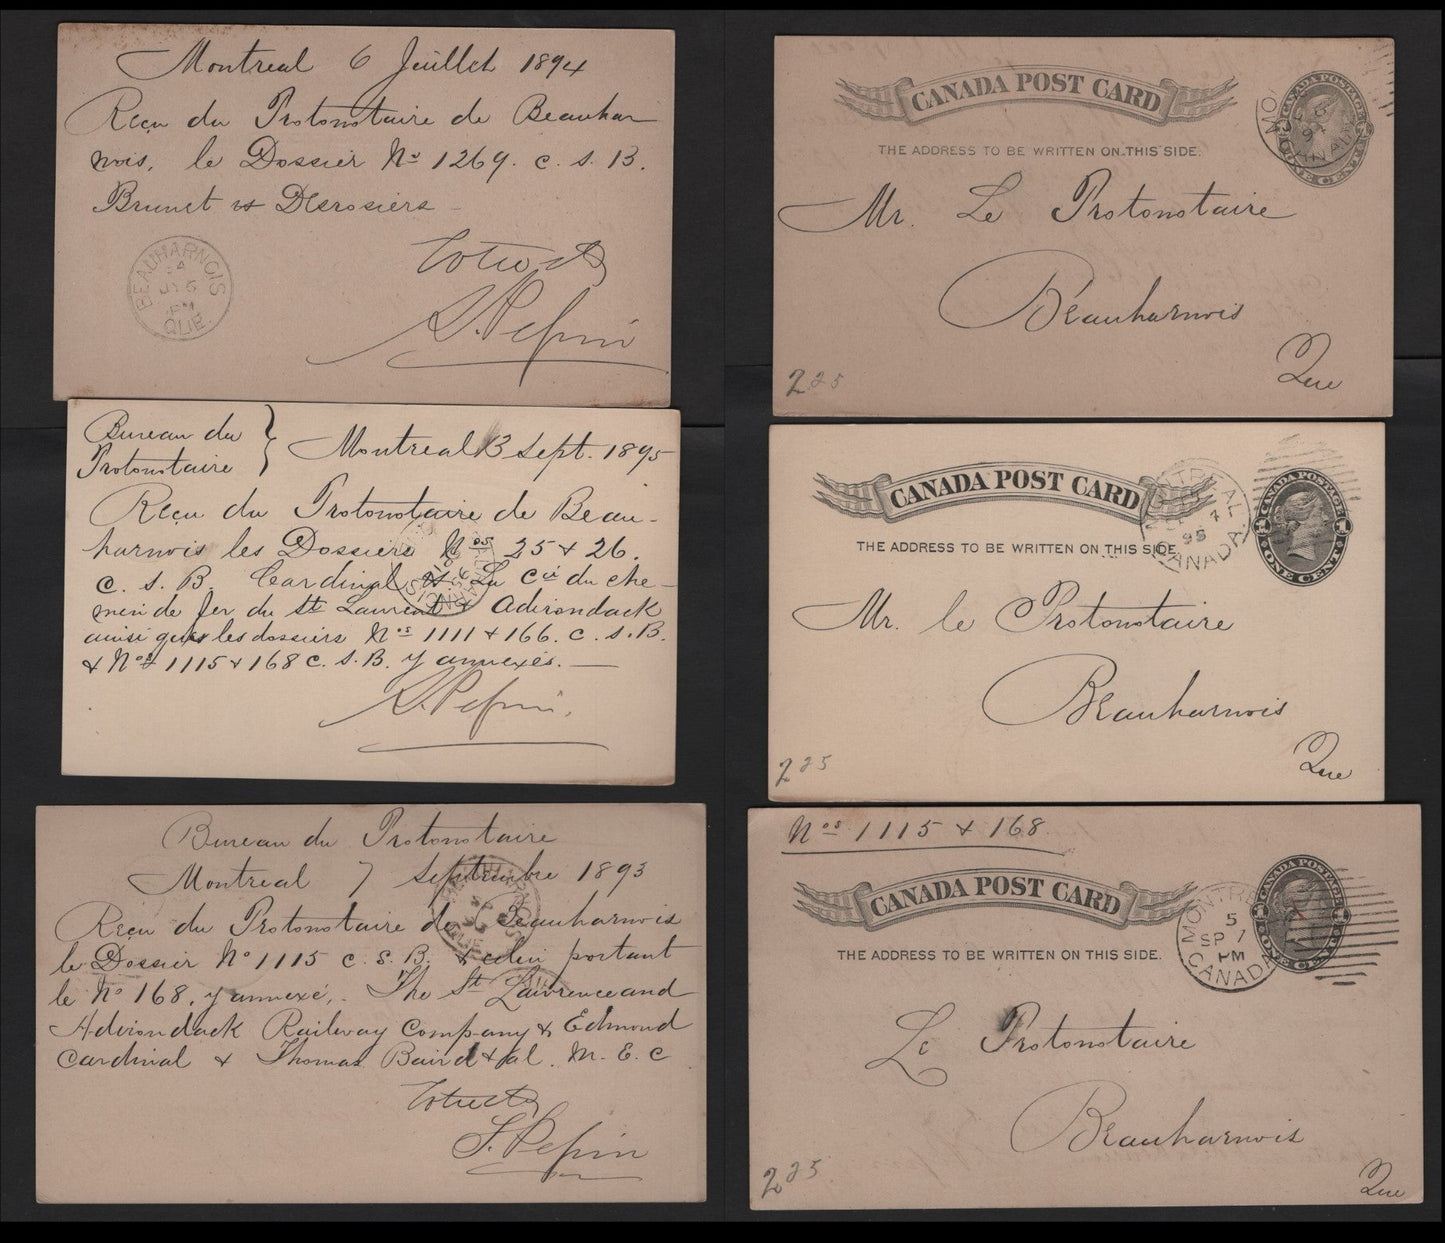 Montreal 6 Juillet 1894
Reçu du Protonotaire de Beauhar
nois, le Dossier No 1269. C. S. B.
Brunet vs Desrosiers
BEAUHARNOIS
94
JY 6
PM
QUE.
Pepin
CANADA POST CARD
THE ADDRESS TO BE WRITTEN ON THIS SIDE.
CANADA POSTAGE
ONE CENT
Mr. Le Protonotaire
Beauharnois
Que
225
Bureau du
Protonotaire
Montreal 3 Sept. 1895
Reçu du Protonotaire de Beau-
harnois les Dossiers Nos 25 & 26.
C. S. B. Cardinal vs La Cie du che-
min de fer du St Laurent & Adirondack
ainsi que les dossiers Nos 1111 & 166. C. S. B.
& Nos 1115 & 168 C. S. B. y annexés.
Pepin
CANADA POST CARD
THE ADDRESS TO BE WRITTEN ON THIS SIDE
MONTREAL
95
CANADA
CANADA POSTAGE
1 1
ONE CENT
Mr. le Protonotaire
Beauharnois
Que
225
Bureau du Protonotaire
Montreal 7 Septembre 1893
Reçu du Protonotaire de Beauharnois
le Dossier No 1115 C. S. B. & celui portant
le No 168, y annexé,. The St Lawrence and
Adirondack Railway Company & Edmond
Cardinal & Thomas Baird & al. M. E. C
Pepin
Nos 1115 & 168.
CANADA POST CARD
THE ADDRESS TO BE WRITTEN ON THIS SIDE.
MONTRE
5
SP 7
PM
CANADA
CANADA POSTAGE
1 1
ONE CENT
Le Protonotaire
Beauharnois
Que
225